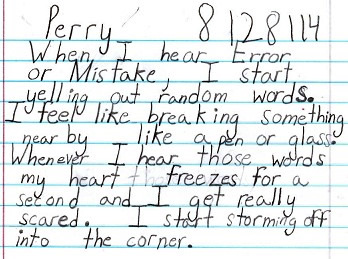 Perry 8/28/14
When I hear Error
or Mistake, I start
yelling out random words.
I feel like breaking something
near by like a pen or glass.
Whenever I hear those words
my heart freezes for a
second and I get really
scared. I start storming off
into the corner.